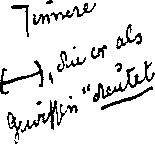 Innere
(—), die er als
Gewissen" deutet